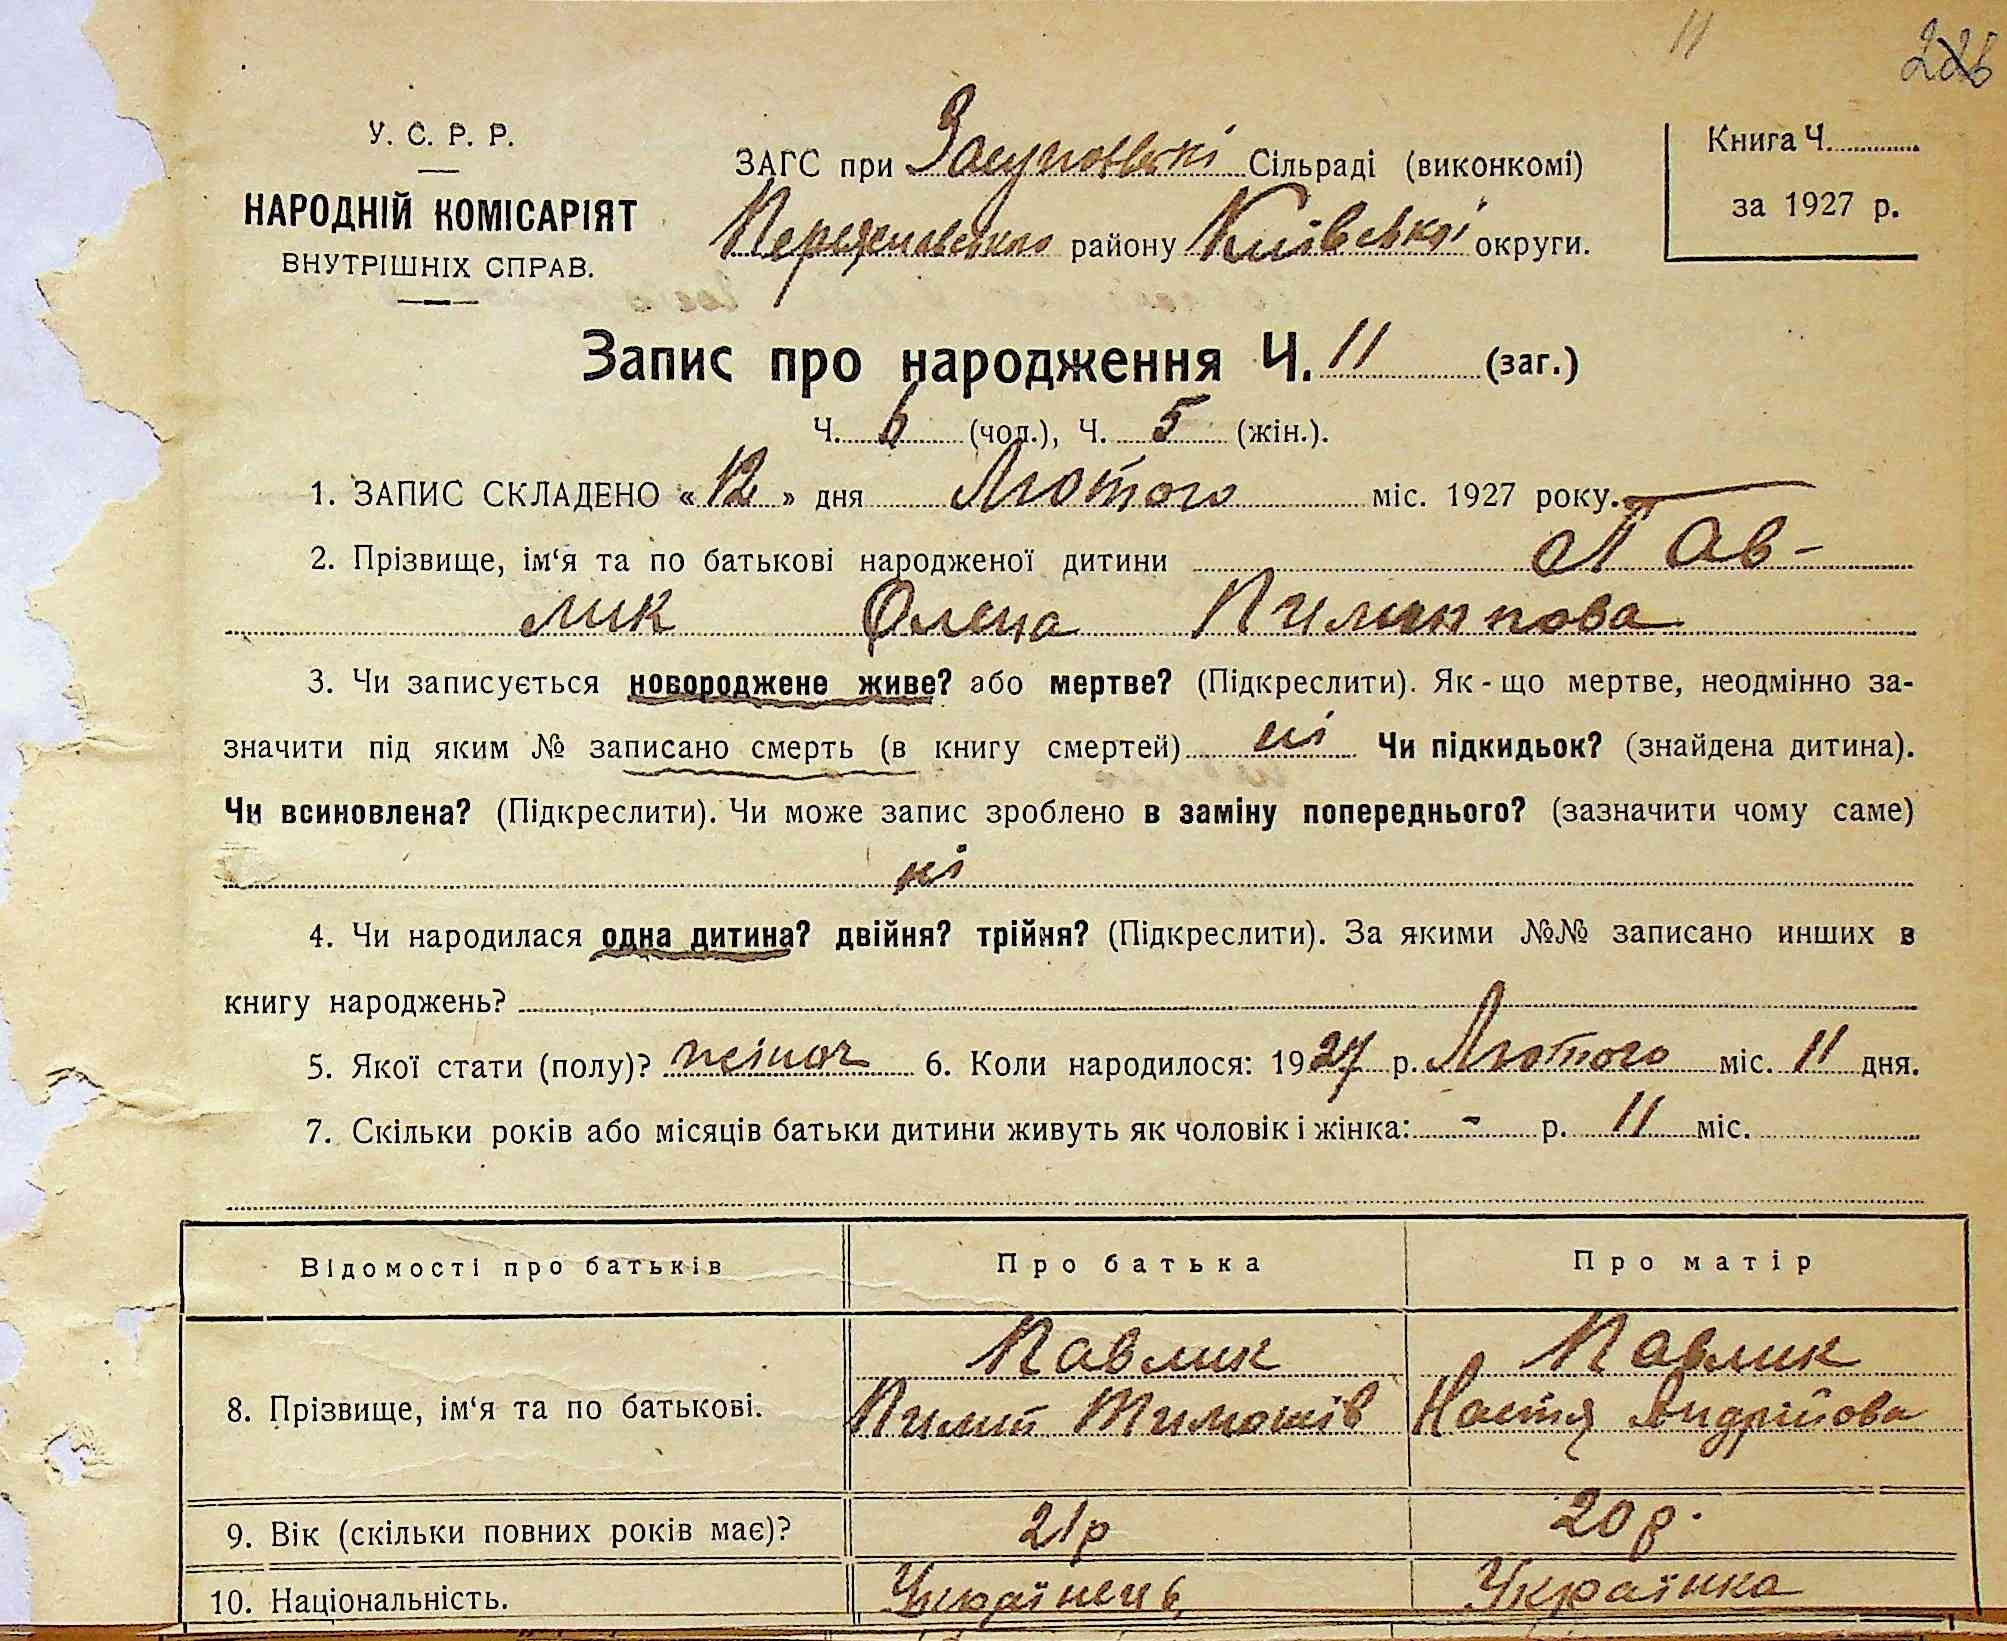 11
У. С. Р. Р.
НАРОДНІЙ КОМІСАРІЯТ
ВНУТРІШНІХ СПРАВ.
ЗАГС при Засупоївські Сільраді (виконкомі)
району Київської округи.
Книга Ч.
за 1927 р.
Запис про народження Ч. 11 (заг.)
Ч. 6 (чол.), Ч. 5 (жін.).
1. ЗАПИС СКЛАДЕНО «12» дня Лютого міс. 1927 року.
2. Прізвище, ім‘я та по батькові народженої дитини Пав-
лик Олена Пилипова
3. Чи записується новороджене живе? або мертве? (Підкреслити). Як-що мертве, неодмінно за-
значити під яким № записано смерть (в книгу смертей) ні Чи підкидьок? (знайдена дитина).
Чи всиновлена? (Підкреслити). Чи може запис зроблено в заміну попереднього? (зазначити чому саме)
ні
4. Чи народилася одна дитина? двійня? трійня? (Підкреслити). За якими №№ записано инших в
книгу народжень?
5. Якої стати (полу)? жіноч 6. Коли народилося: 1927 р. Лютого міс. 11 дня.
7. Скільки років або місяців батьки дитини живуть як чоловік і жінка: - р. 11 міс.
Відомості про батьків Про батька Про матір
8. Прізвище, ім‘я та по батькові.
Павлик
Пилип Тимошів
Павлик
Настя Андрійова
9. Вік (скільки повних років має)? 21р 20 р.
10. Національність. Українець Українка